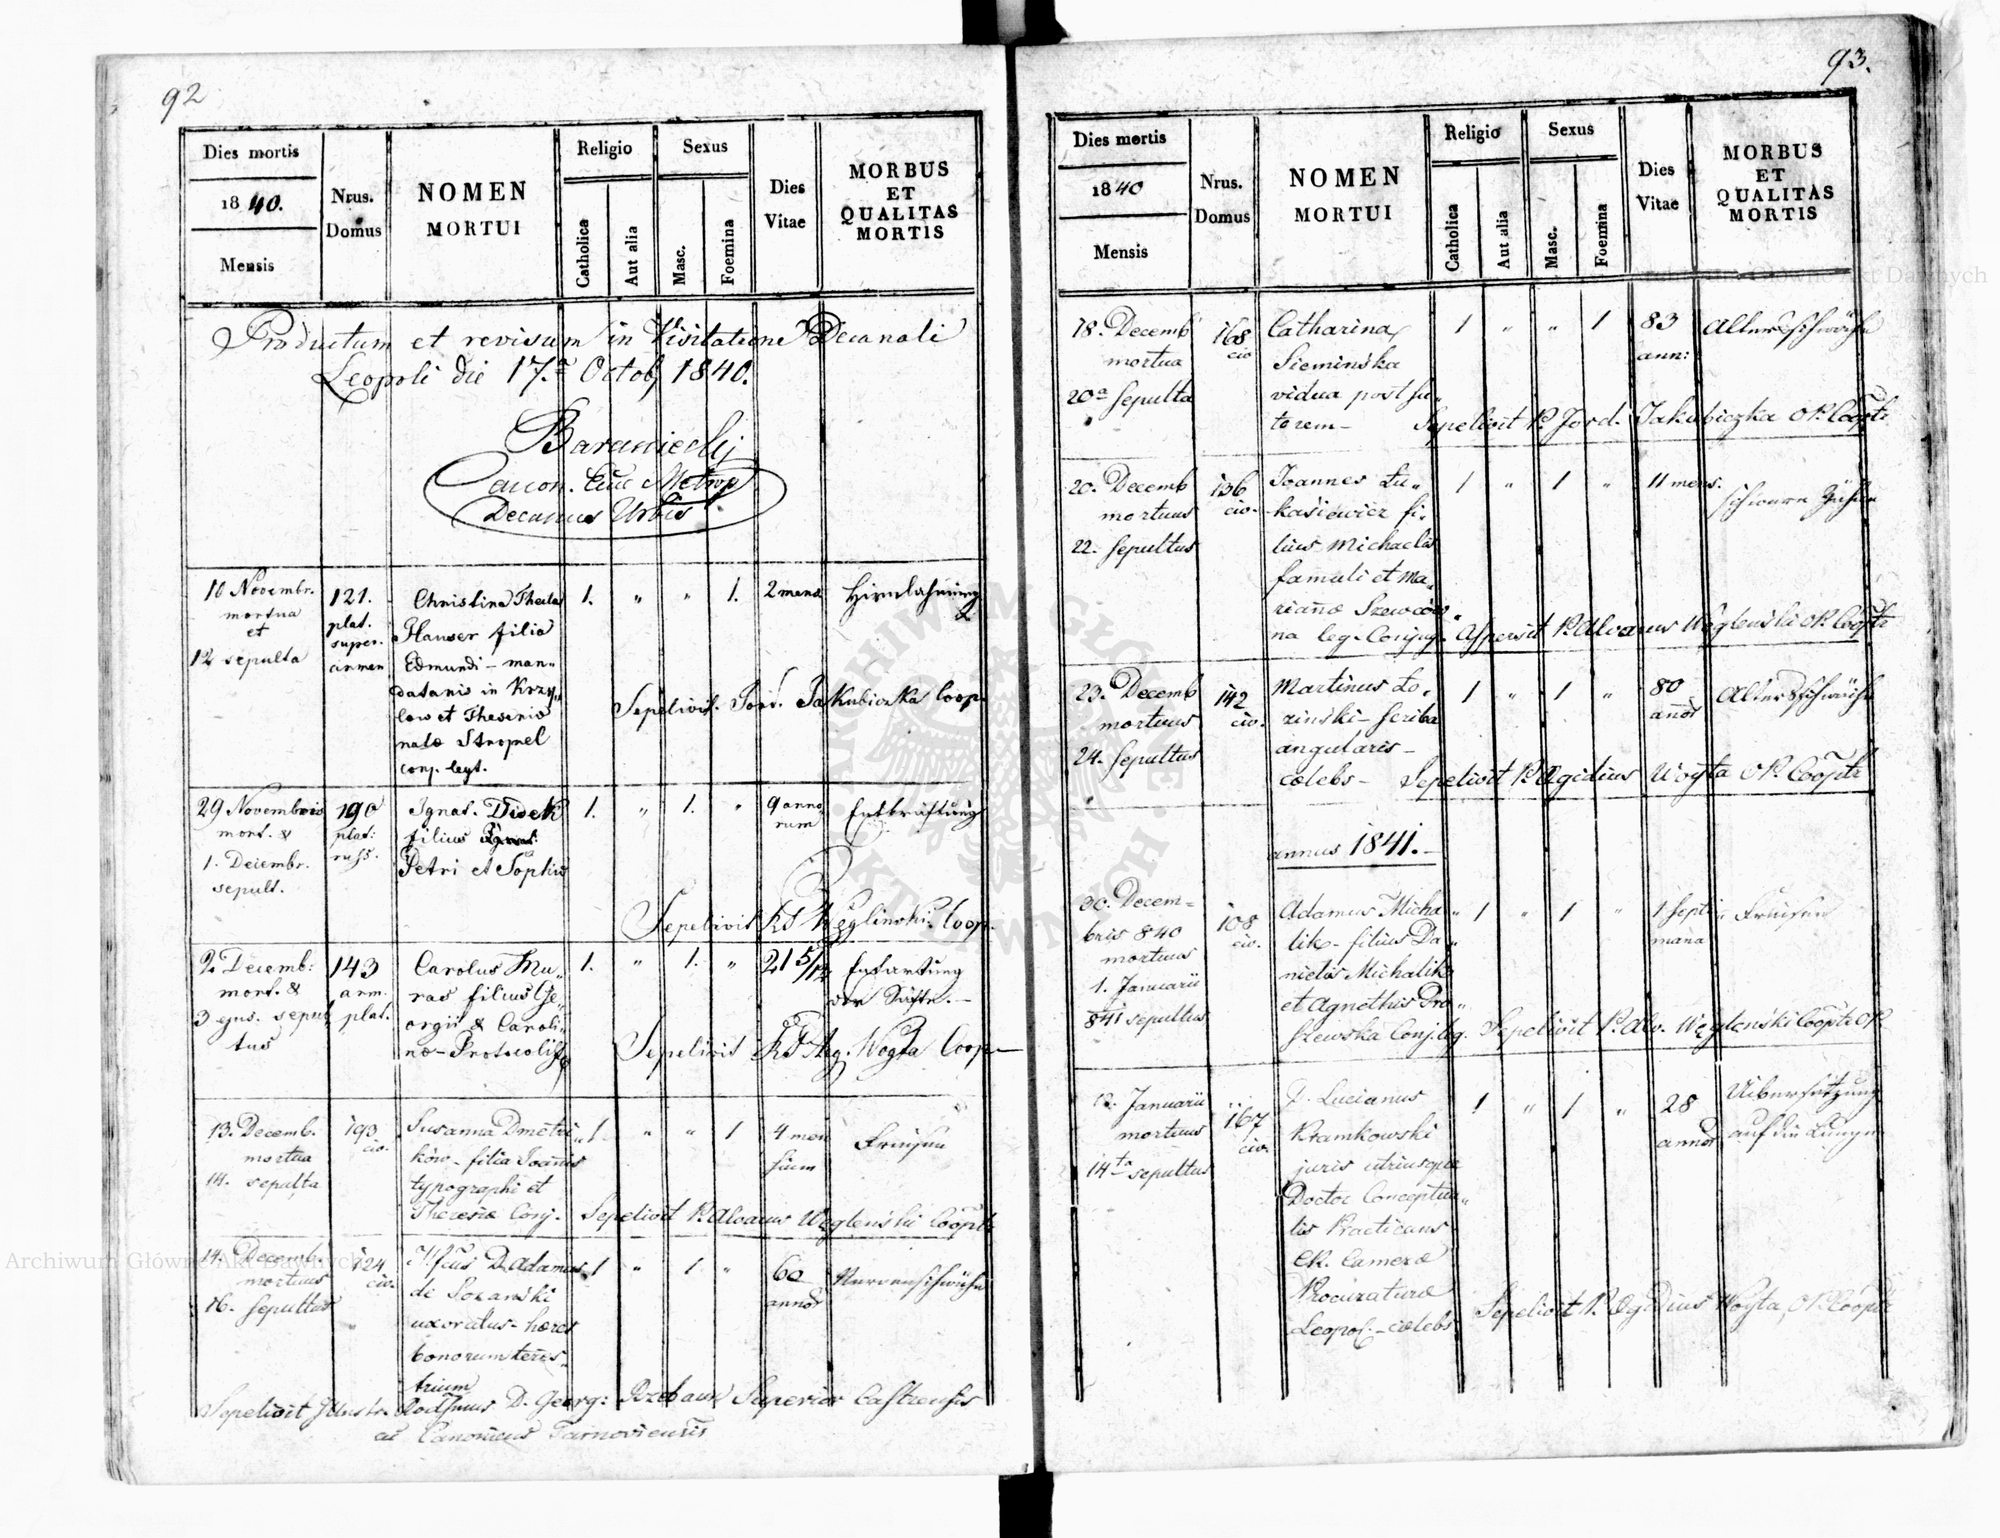 92
Dies mortis
1840.
Mensis
Nrus.
Domus
NOMEN
MORTUI
Religio
Catholica
Aut alia
Sexus
Masc.
Foemina
Dies
Vitae
MORBUS
ET
QUALITAS
MORTIS
Productum et revisum in Visitatione Decanali
Leopoli die 17.a Octob 1840.
Baraniecki
Canon. Metrop
Decanus Urbis
10 Novembr.
mortua
et
12 sepulta
121.
plat.
super.
Christina Thecla
Hauser filia
Edmundi - man-
datarii in Krzy-
low et Theseriae
natae Stropel
conj. legt.
1. " " 1.
2 mens
Hirnlähmung
Sepelivit. Jord. Jakubiczka Coop.
29 Novembris
mort. &
1. Decembr.
sepult.
190
plat:
russ.
Ignat. Divek
filius
Petri et Sophie
1. " 1. "
9 anno
rum
Entkräftung
Sepelivit Węglinski Coop.
2 Decemb:
mort. &
3 ejus. sepul
tus
143
arm.
plat.
Carolus Mu-
ras filius Ge-
orgii & Caroli-
nae - Protocolist
1. " 1. "
21 5/12
Entartung
der Säfte. -
Sepelivit Aeg. Wogta Coop
13. Decemb.
mortua
14. sepulta
193
civ.
Susanna Dmetri-
ków - filia Joannis
typographi et
Theresiae Conj.
1 " " 1
4 men
sium
Fraisen
Sepelivit P. Alvarus Węgleński Coopte
14. Decemb.
mortuus
16. sepultus
124
civ.
D. Adamus
de Pozarski
uxoratus - haeres
bonorum terres-
trium
1 " 1 "
60
annor
Nervenschwäche
Sepelivit Illustr. D. Georg: Superior Castrensis
ac Canonicus Tarnoviensis
93.
Dies mortis
1840
Mensis
Nrus.
Domus
NOMEN
MORTUI
Religio
Catholica
Aut alia
Sexus
Masc.
Foemina
Dies
Vitae
MORBUS
ET
QUALITAS
MORTIS
18. Decemb
mortua
20a Sepulta
168
civ
Catharina
Sieminska
vidua post su-
torem -
1 " " 1
83
ann:
Altersschwäche
Sepelivit P. Jord. Jakubiczka OP. Coopte
20. Decemb
mortuus
22. Sepultus
136
civ.
Joannes Lu-
kasiewicz fi-
lius Michaelis
famuli et Ma-
rianae Szewców
na leg. Conjug.
1 " 1 "
11 mens.
Aspersit P. Alvarus Węgleński OP. Coopte
23. Decemb
mortuus
24. Sepultus
142
civ.
Martinus Lo-
zinski - scriba
angularis -
caelebs -
1 " 1 "
80
annor
Altersschwäche
Sepelivit P. Aegidius Woyta OP. Coopte
annus 1841.
30. Decem-
bris 840
mortuus
1. Januarii
841 sepultus
108
civ.
Adamus Micha
lik - filius Da-
nielis Michalik
et Agnethis Pro-
szewska Conj. leg.
1 " 1 "
1 Septi-
mana
Fraisen
Sepelivit P. Alv. Węgleński Coopte OP.
12. Januarii
mortuus
14ta sepultus
167
civ.
D. Lucianus
Kramkowski
juris utriusque
Doctor Conceptua-
lis Practicans
CR. Camerae
Procuraturae
Leopol. - caelebs
1 " 1 "
28
annor
Uibersetzung
auf die Lunge
Sepelivit P. Aegidius Woyta, OP. Coopte
ARCHIWUM GŁÓWNE AKT DAWNYCH
Archiwum Główne Akt Dawnych
Archiwum Główne Akt Dawnych